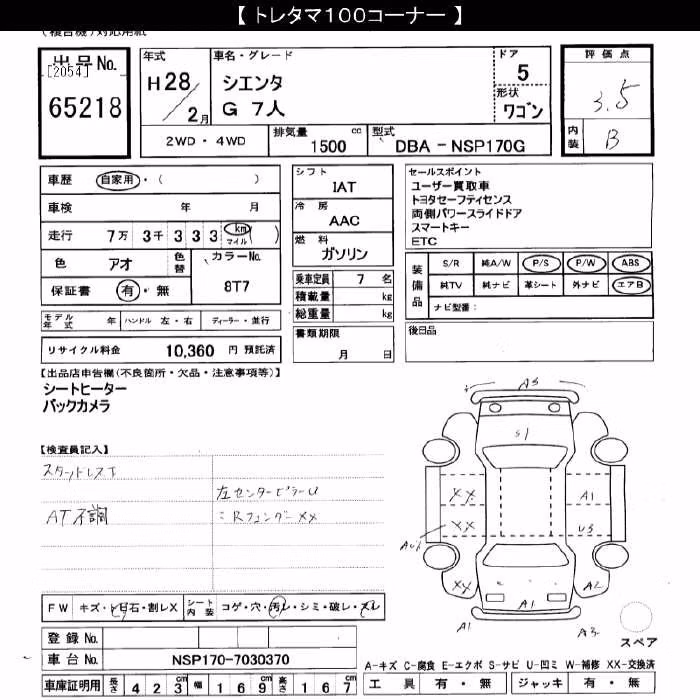 【 トレタマ100コーナー 】
(複合機)対応用紙
出品No.
[2054]
65218
年式
H28
2月
車名・グレード
シエンタ
G 7人
ドア
5
形状
ワゴン
評価点
3.5
内装
B
2WD・4WD
排気量 cc
1500
型式
DBA - NSP170G
車歴 自家用・( )
車検 年 月
走行 7万 3千 3 3 3 km マイル ( )
色 アオ 色替 カラーNo. 8T7
保証書 有・無
モデル年式 年 ハンドル 左・右 ディーラー・並行
リサイクル料金 10,360 円 預託済
シフト
IAT
冷房
AAC
燃料
ガソリン
乗車定員 7 名
積載量 kg
総重量 kg
書類期限
月 日
セールスポイント
ユーザー買取車
トヨタセーフティセンス
両側パワースライドドア
スマートキー
ETC
装備品
S/R 純A/W P/S P/W ABS
純TV 純ナビ 革シート 外ナビ エアB
ナビ型番:
後日品
【出品店申告欄(不良箇所・欠品・注意事項等)】
シートヒーター
バックカメラ
【検査員記入】
スタットレスT
AT不調
左センターピラーU
〃Rフェンダー XX
A3
S1
XX
A1
XX
U3
XX
A2
A1
A1
A3
スペア
FW キズ・ヒ石・割レX シート内装 コゲ・穴・汚レ・シミ・破レ・スレ
登録No.
車台No. NSP170-7030370
車庫証明用 長さ 4 2 3 幅 1 6 9 高さ 1 6 7
A-キズ C-腐食 E-エクボ S-サビ U-凹ミ W-補修 XX-交換済
工具 有・無 ジャッキ 有・無